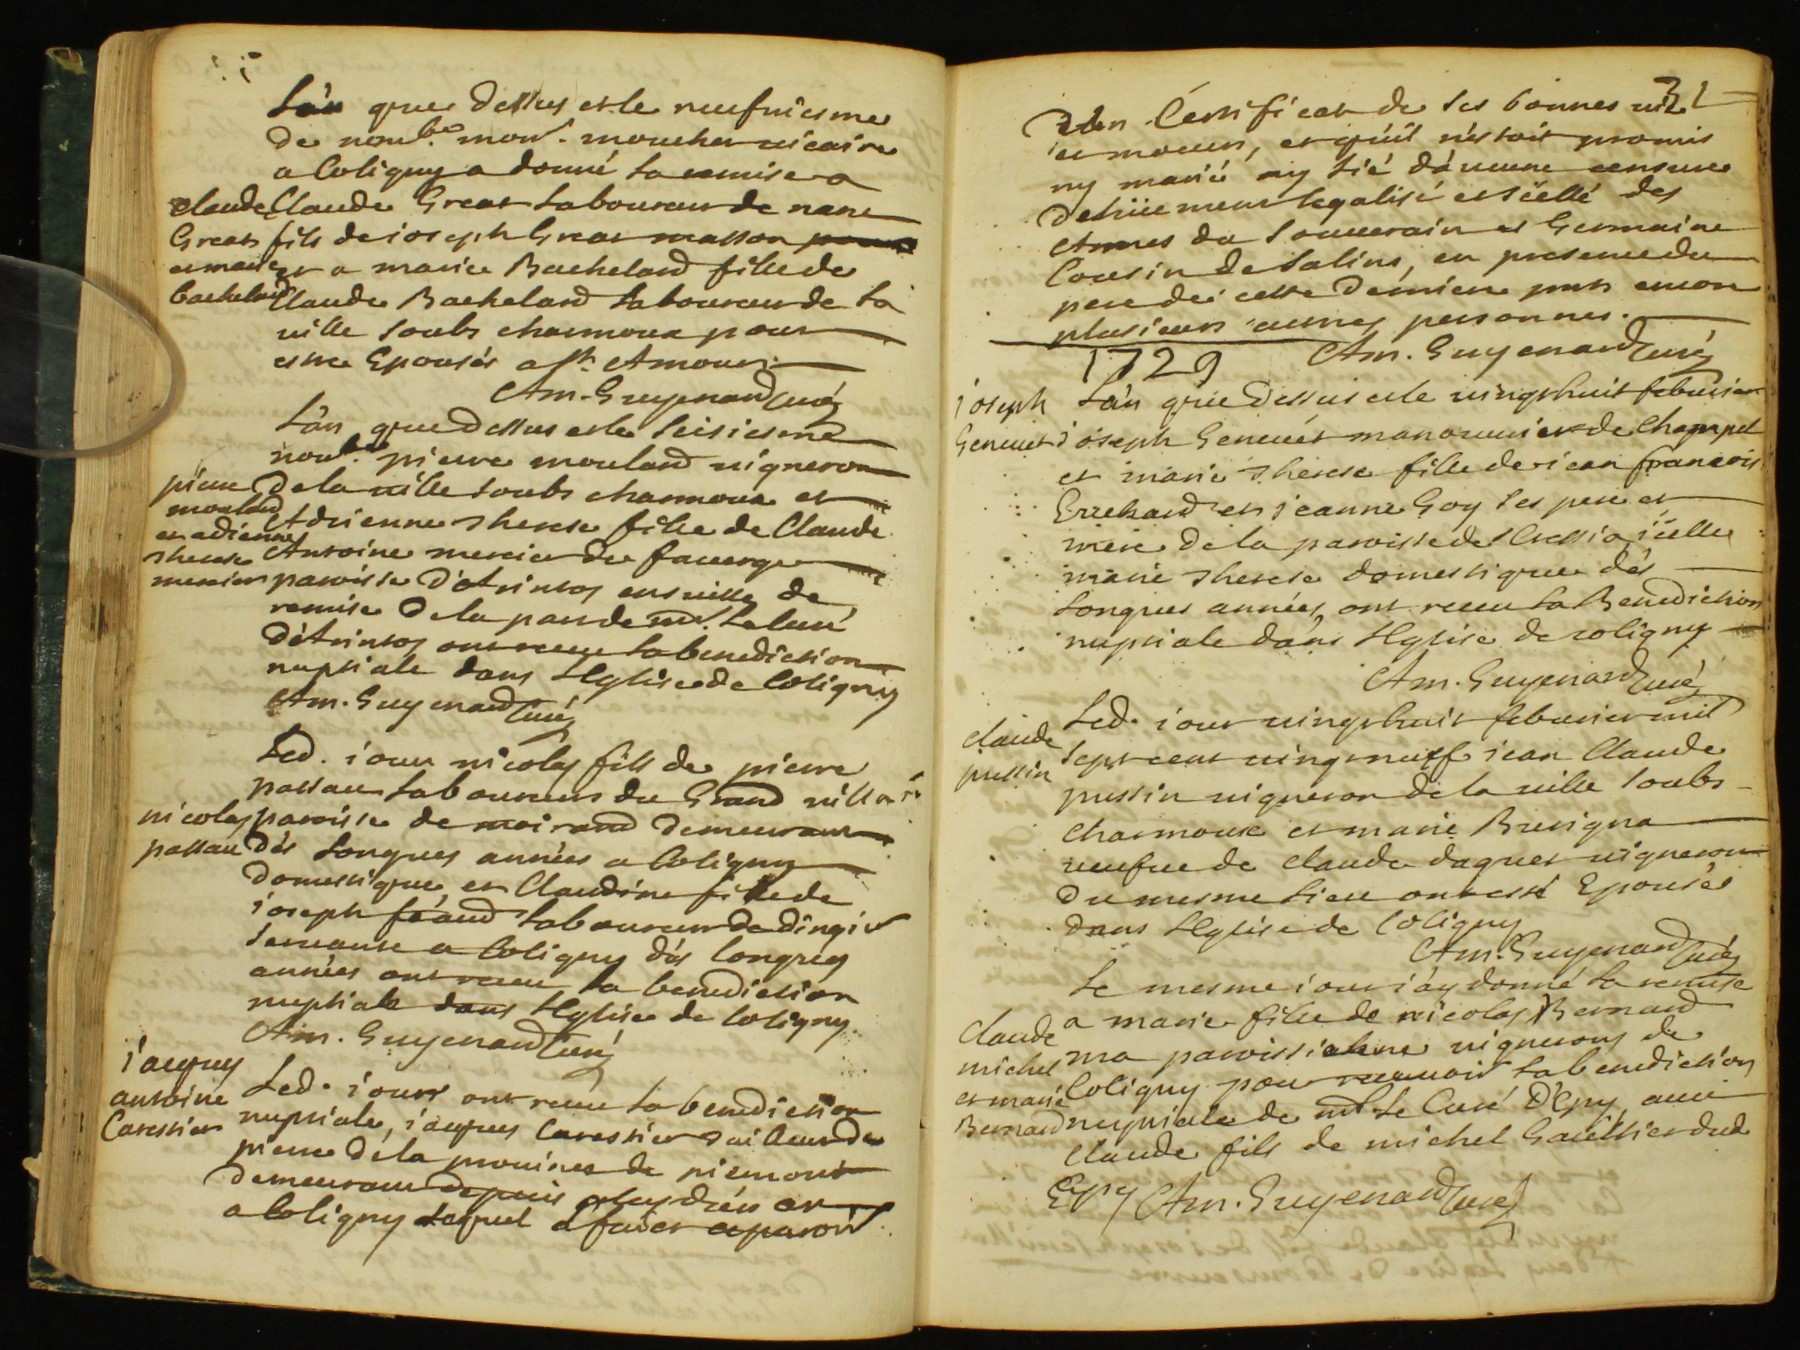 L'an que dessus et le neufuiesme
de nou.bre mons.r moucher uicaire
a Coligny a donné la remise a
claude Claude Great laboureur de nanc
Great fils de ioseph Great masson
et marie et a marie Bachelard fille de
bachelard Claude Bachelard laboureur de la
uille soubs charmoux pour
estre Epousés a st. Amour.
Am. Guyenard Curé
L'an que dessus et le seisiesme
nou.bre pierre moulard uigneron
pierre de la uille soubs charmoux et
moulard Adrienne therese fille de Claude
et adrienne Antoine mercier de fauerge
therese
mercier paroisse d'Otrintos ensuille de
remise de la part de mr. le curé
d'Otrintos ont receu la benediction
nuptiale dans l'Eglise de Coligny
Am. Guyenard Curé
Led. iour nicolas fils de pierre
passau laboureur du Grand uillars
nicolas paroisse de moirand demeurant
passau dés longues années a Coligny
domestique et Claudine fille de
ioseph féaud laboureur de dingir
seruante a Coligny dés longues
années ont receu la benediction
nuptiale dans l'Eglise de Coligny.
Am. Guyenard Curé
iacques
antoine Led. iour ont receu la benediction
Carestier nuptiale, iacques Carestier tailleur de
pierre de la prouince de piemont
demeurant depuis dix ans
a Coligny lequel a fait apparoir
31
d'un Certificat de ses bonnes uie
et moeurs, et qu'il n'estoit promis
ny marié ny lié d'aucune censure
deüement legalisé et scellé des
Armes du Souuerain et Germaine
Cousin de Salins, en presence du
pere de cette derniere puis encor
plusieurs autres personnes.
1729 Am. Guyenard Curé
ioseph L'an que dessus et le uingthuit feburier
Geneuet ioseph Geneuét manouurier de Champel
et marie therese fille de iean francois
Errehard et ieanne Goy ses pere et
mere de la paroisse de Cressia icelle
marie therese domestique dés
longues années, ont receu la Benediction
nuptiale dans l'Eglise de coligny
Am. Guyenard Curé
Led. iour uingthuit feburier mil
claude sept cent uingt neuf iean Claude
pussin pussin uigneron de la uille soubs
charmoux et marie Breuigna
ueufue de claude daguet uigneron
du mesme lieu ont esté Epousés
dans l'Eglise de Coligny
Am. Guyenard Curé
le mesme iour i'ay donné la remise
Claude a marie fille de nicolas Bernard
michel ma paroissiene uigneron de
et marie Coligny pour receuoir la benediction
Bernard nuptiale de mr. le Curé d'Epy auec
Claude fils de michel Gauthier dud.
Epy Am. Guyenard Curé